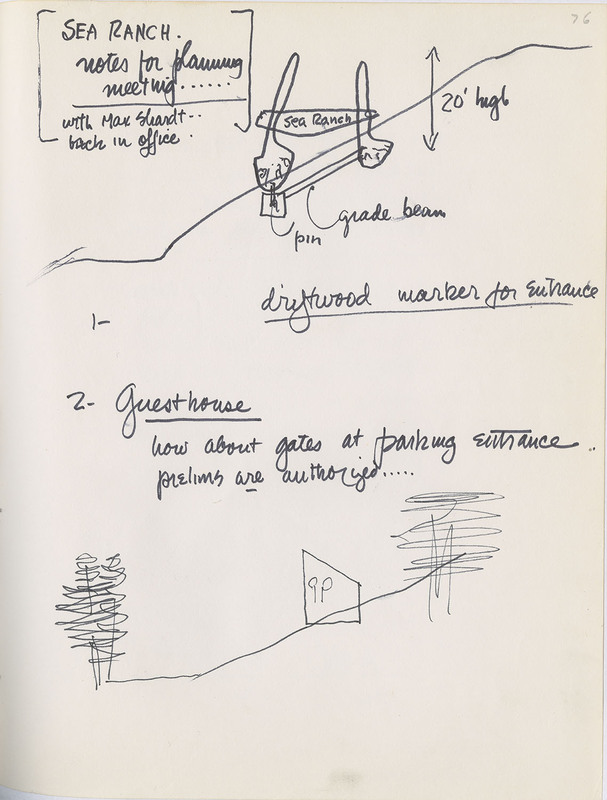 76
SEA RANCH.
notes for planning
meeting......
with Max Shardt..
back in office.
sea Ranch
20' high
grade beam
pin
driftwood marker for entrance
1-
2- Guesthouse
how about gates at parking entrance..
prelims are authorized.....